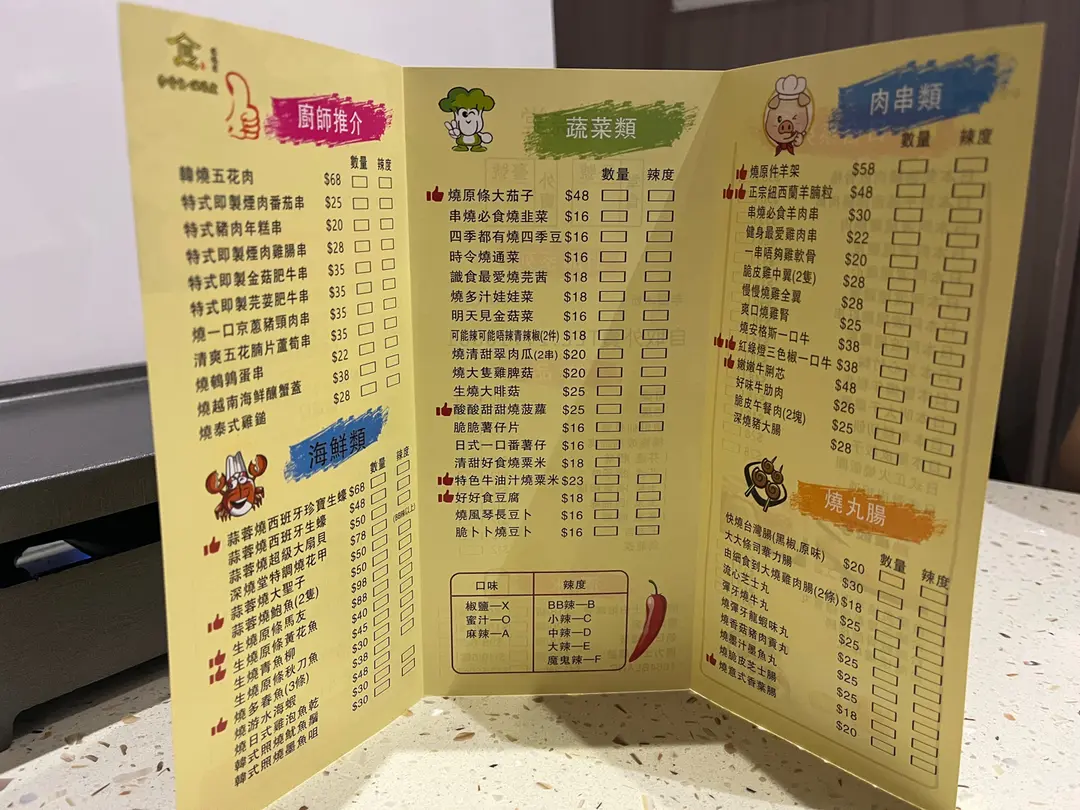 廚師推介
數量 辣度
韓燒五花肉 $68
特式即製煙肉番茄串 $25
特式豬肉年糕串 $20
特式即製煙肉雞腸串 $28
特式即製金菇肥牛串 $35
特式即製芫荽肥牛串 $35
燒一口京蔥豬頸肉串 $35
清爽五花腩片蘆筍串 $35
燒鵪鶉蛋串 $22
燒越南海鮮釀蟹蓋 $38
燒泰式雞鎚 $28
海鮮類
數量 辣度
蒜蓉燒西班牙珍寶生蠔 $68
蒜蓉燒西班牙生蠔 $48
蒜蓉燒超級大扇貝 $50
深燒堂特調燒花甲 $78
蒜蓉燒大聖子 $50
蒜蓉燒鮑魚(2隻) $50
生燒原條馬友 $98
生燒原條黃花魚 $88
生燒青魚柳 $40
生燒原條秋刀魚 $45
燒多春魚(3條) $30
燒游水海蝦 $38
燒日式雞泡魚乾 $48
韓式照燒魷魚鬚 $30
韓式照燒墨魚咀 $30
蔬菜類
數量 辣度
燒原條大茄子 $48
串燒必食燒韭菜 $16
四季都有燒四季豆 $16
時令燒通菜 $16
識食最愛燒芫茜 $18
燒多汁娃娃菜 $18
明天見金菇菜 $16
可能辣可能唔辣青辣椒(2件) $18
燒清甜翠肉瓜(2串) $20
燒大隻雞脾菇 $20
生燒大啡菇 $25
酸酸甜甜燒菠蘿 $25
脆脆薯仔片 $16
日式一口番薯仔 $16
清甜好食燒粟米 $18
特色牛油汁燒粟米 $23
好好食豆腐 $18
燒風琴長豆卜 $16
脆卜卜燒豆卜 $16
口味 辣度
椒鹽—X BB辣—B
蜜汁—O 小辣—C
麻辣—A 中辣—D
大辣—E
魔鬼辣—F
肉串類
數量 辣度
燒原件羊架 $58
正宗紐西蘭羊腩粒 $48
串燒必食羊肉串 $30
健身最愛雞肉串 $22
一串唔夠雞軟骨 $20
脆皮雞中翼(2隻) $28
慢慢燒雞全翼 $28
爽口燒雞腎 $25
燒安格斯一口牛 $38
紅綠燈三色椒一口牛 $38
嫩嫩牛脷芯 $48
好味牛肋肉 $26
脆皮午餐肉(2塊) $25
深燒豬大腸 $28
燒丸腸
數量 辣度
快燒台灣腸(黑椒,原味) $20
大大條司華力腸 $30
由細食到大燒雞肉腸(2條) $18
流心芝士丸 $25
彈牙燒牛丸 $25
燒彈牙龍蝦味丸 $25
燒香菇豬肉貢丸 $25
燒墨汁墨魚丸 $25
燒脆皮芝士腸 $18
燒意式香葉腸 $20